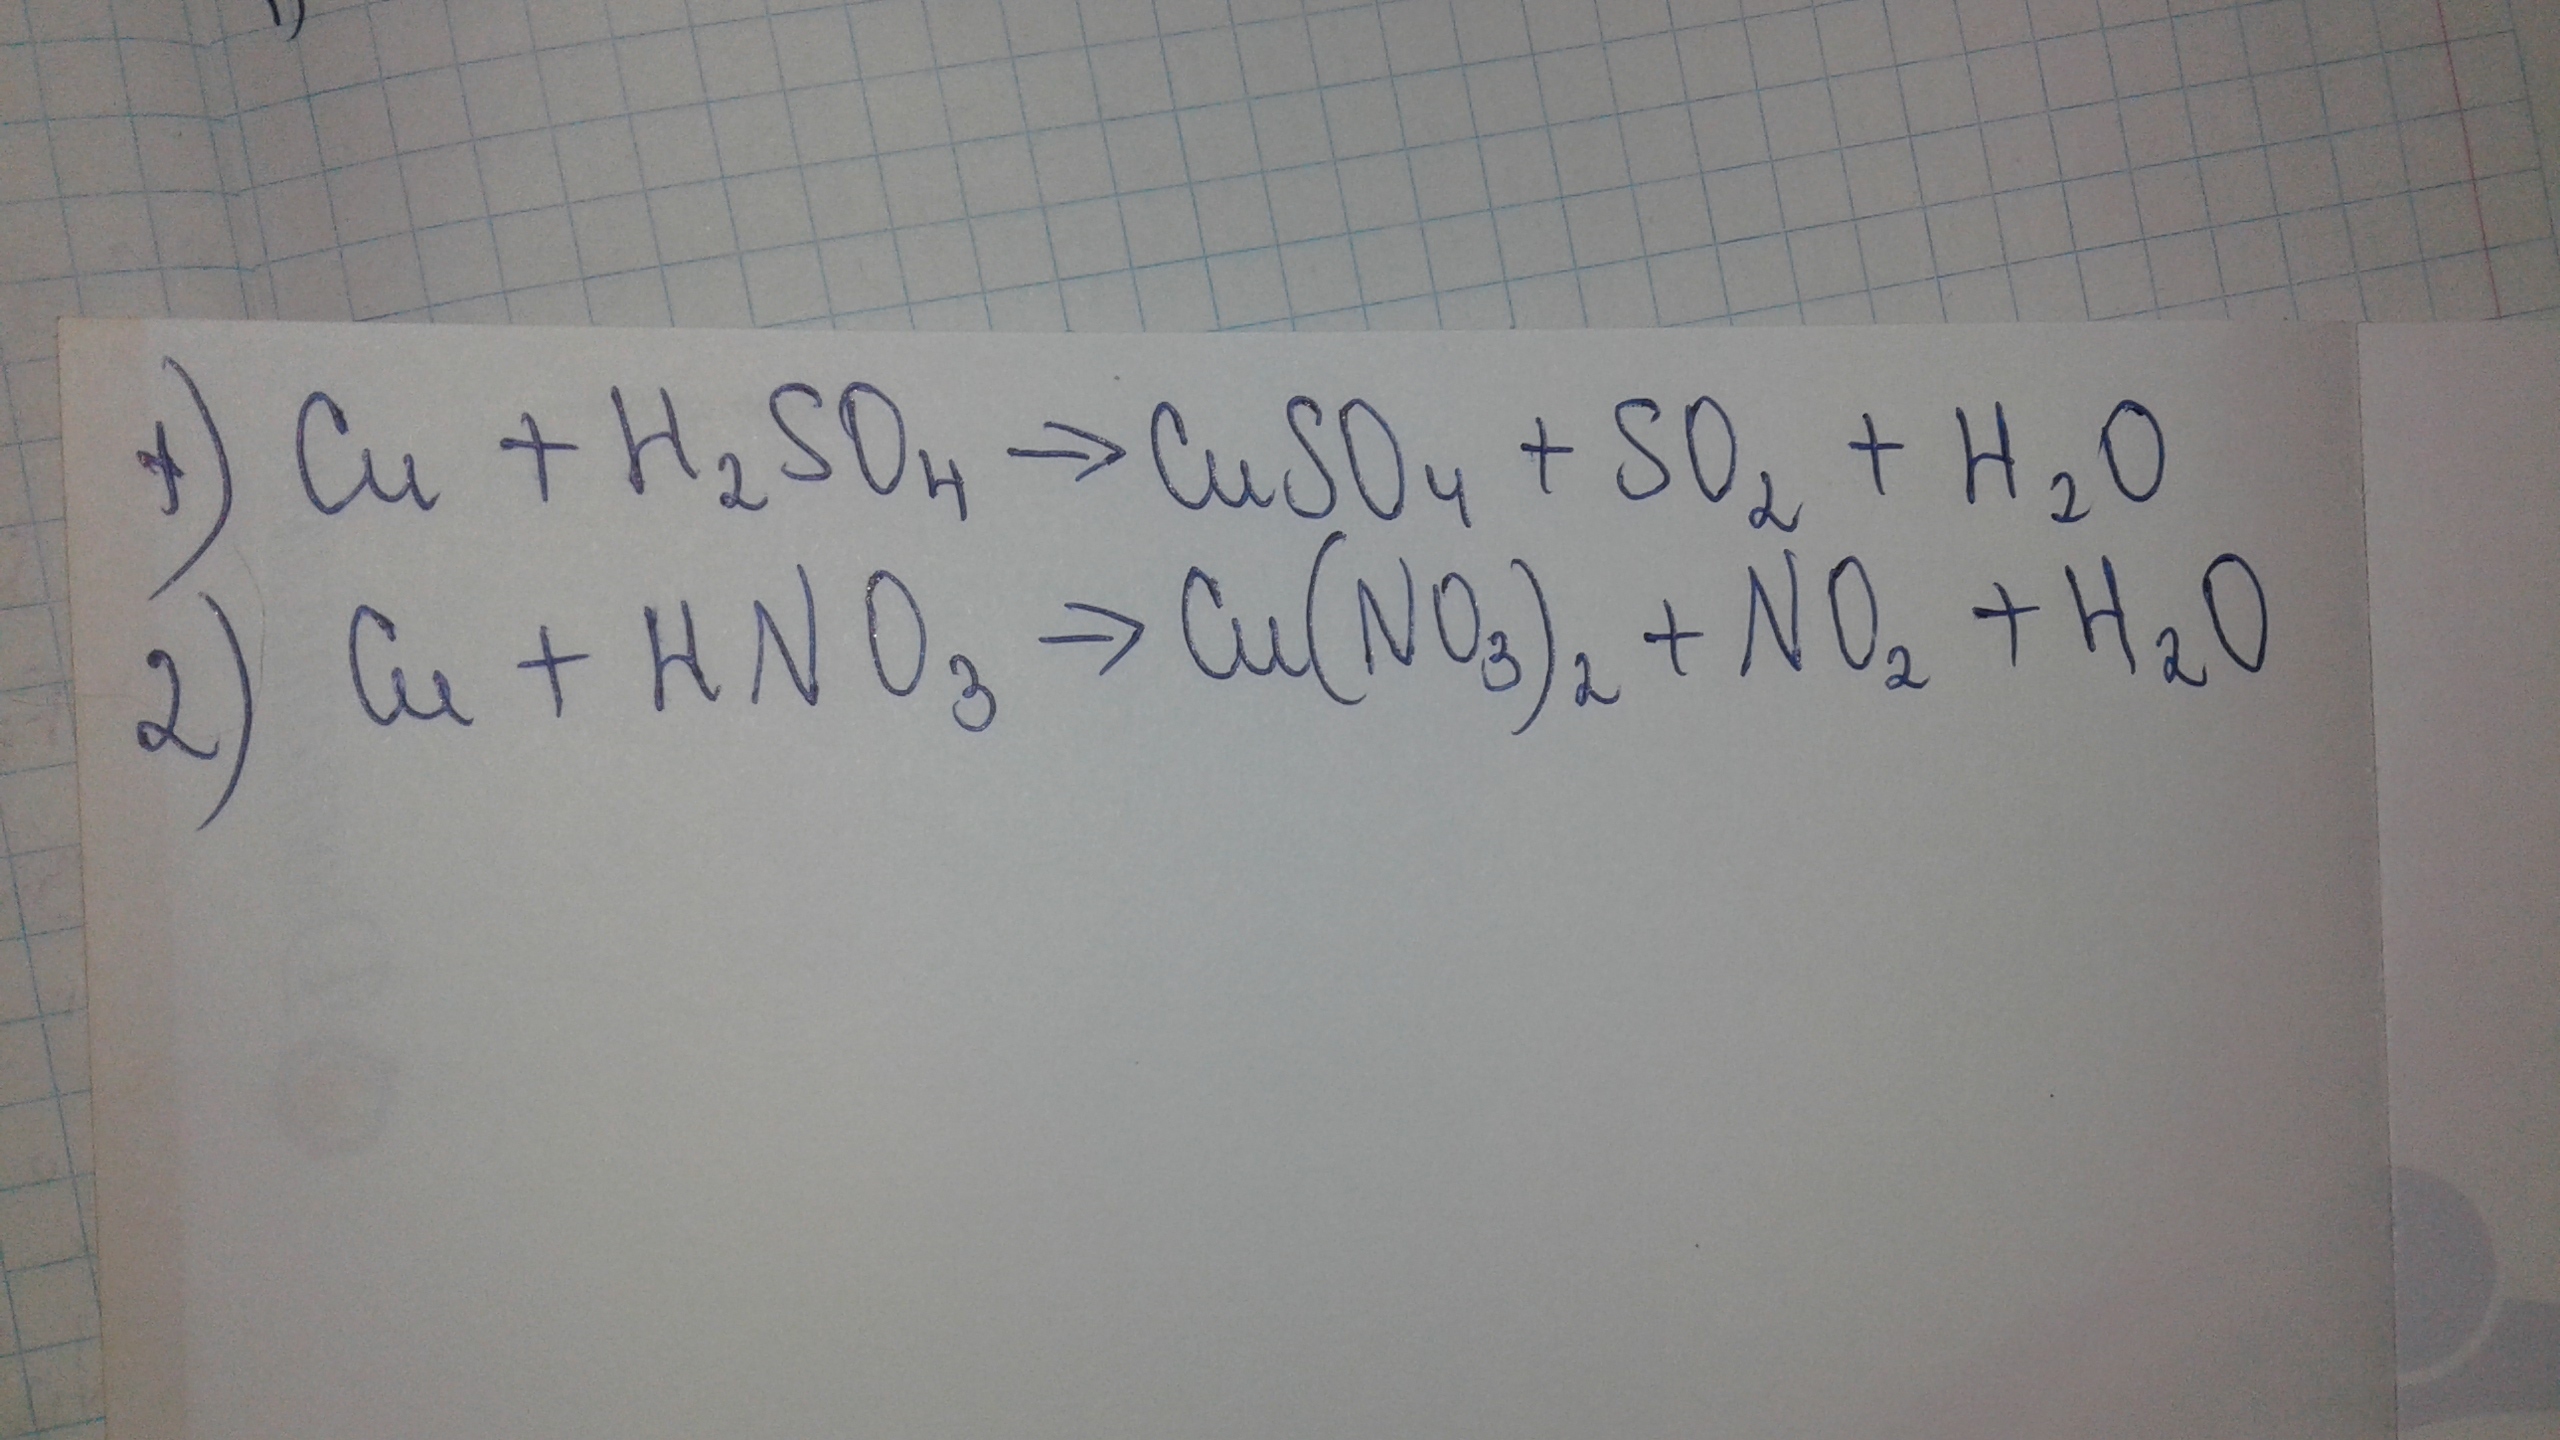 1) Cu + H₂SO₄ → CuSO₄ + SO₂ + H₂O
2) Cu + HNO₃ → Cu(NO₃)₂ + NO₂ + H₂O